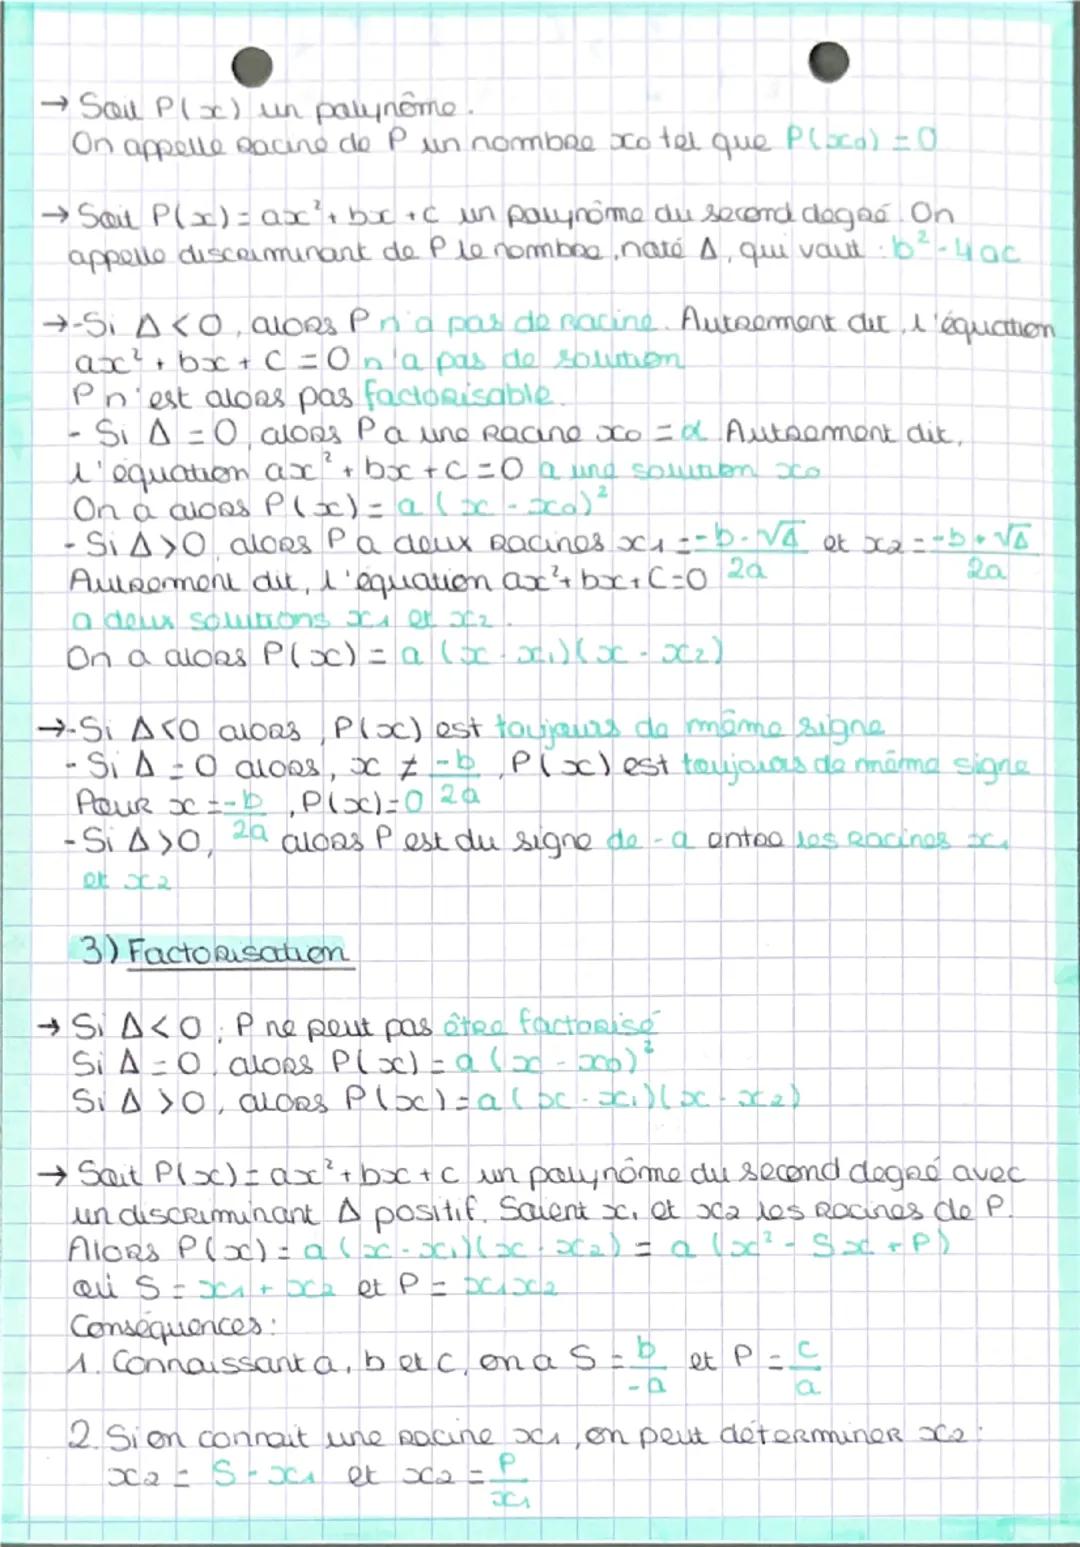 → Soit P(x) un polynôme.
On appelle racine de P un nombre x₀ tel que P(x₀) = 0
→ Soit P(x) = ax² + bx + c un polynôme du second degré. On
appelle discriminant de P le nombre, noté Δ, qui vaut : b² - 4ac
→ - Si Δ < 0, alors P n'a pas de racine. Autrement dit, l'équation
ax² + bx + c = 0 n'a pas de solution
P n'est alors pas factorisable.
- Si Δ = 0, alors P a une racine x₀ = α. Autrement dit,
l'équation ax² + bx + c = 0 a une solution x₀
On a alors P(x) = a(x - x₀)²
- Si Δ > 0, alors P a deux racines x₁ = (-b - √Δ)/2a et x₂ = (-b + √Δ)/2a
Autrement dit, l'équation ax² + bx + c = 0
a deux solutions x₁ et x₂.
On a alors P(x) = a(x - x₁)(x - x₂)
→ - Si Δ < 0 alors, P(x) est toujours de même signe
- Si Δ = 0 alors, x ≠ -b/2a, P(x) est toujours de même signe
Pour x = -b/2a, P(x) = 0
- Si Δ > 0, alors P est du signe de - a entre les racines x₁
et x₂
3) Factorisation
→ Si Δ < 0, P ne peut pas être factorisé
Si Δ = 0, alors P(x) = a(x - x₀)²
Si Δ > 0, alors P(x) = a(x - x₁)(x - x₂)
→ Soit P(x) = ax² + bx + c un polynôme du second degré avec
un discriminant Δ positif. Soient x₁ et x₂ les racines de P.
Alors P(x) = a(x - x₁)(x - x₂) = a(x² - Sx + P)
où S = x₁ + x₂ et P = x₁x₂
Conséquences :
1. Connaissant a, b et c, on a S = b/-a et P = c/a
2. Si on connait une racine x₁, on peut déterminer x₂ :
x₂ = S - x₁ et x₂ = P/x₁